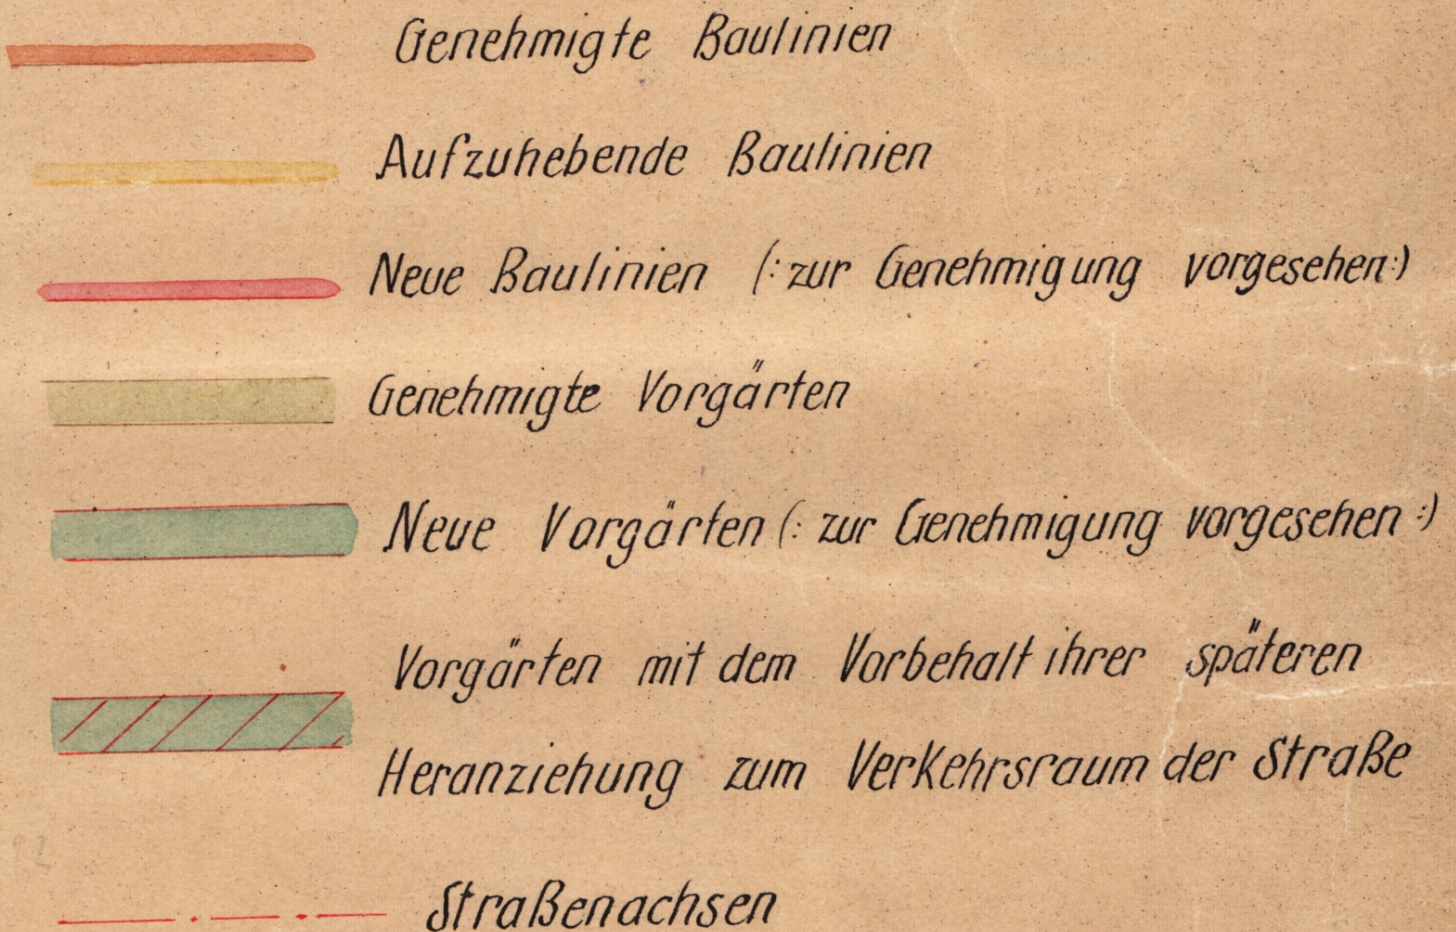 Genehmigte Baulinien
Aufzuhebende Baulinien
Neue Baulinien (: zur Genehmigung vorgesehen :)
Genehmigte Vorgärten
Neue Vorgärten (: zur Genehmigung vorgesehen :)
Vorgärten mit dem Vorbehalt ihrer späteren
Heranziehung zum Verkehrsraum der Straße
Straßenachsen